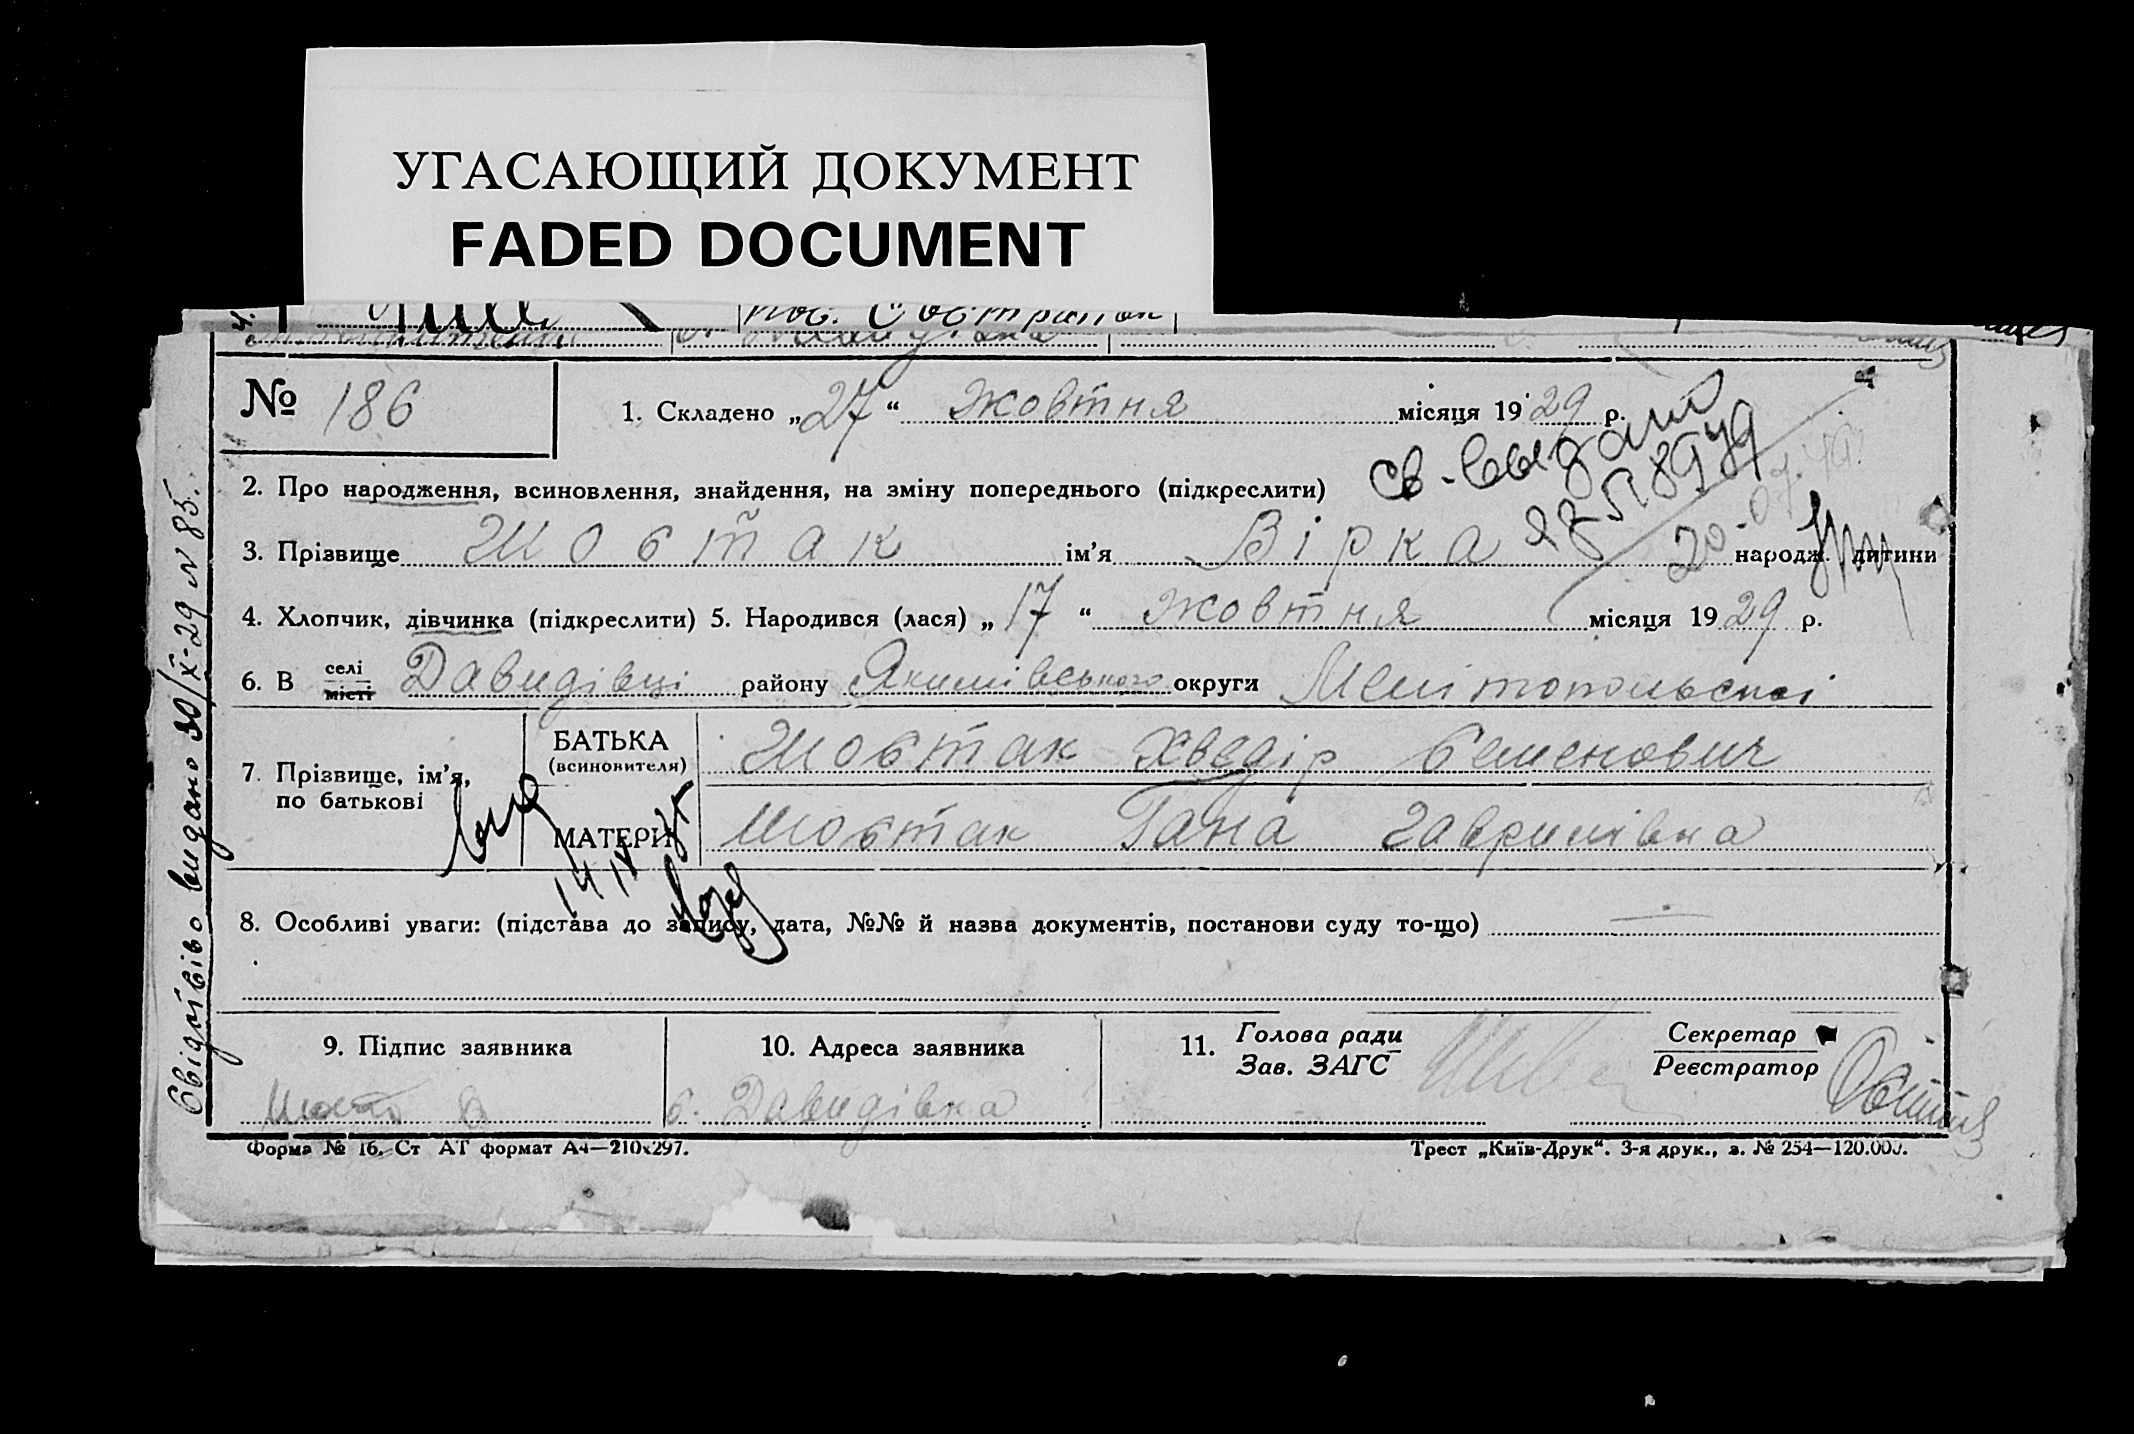 УГАСАЮЩИЙ ДОКУМЕНТ
FADED DOCUMENT
№ 186
1. Складено „27“ жовтня місяця 1929 р.
2. Про народження, всиновлення, знайдення, на зміну попереднього (підкреслити)
3. Прізвище Шостак ім’я Вірка народж. дитини
4. Хлопчик, дівчинка (підкреслити) 5. Народився (лася) „17“ жовтня місяця 1929 р.
6. В селі місті Давидівці району Якимівського округи Мелітопольської
7. Прізвище, ім’я, по батькові
БАТЬКА (всиновителя) Шостак Хведір Семенович
МАТЕРИ Шостак Гана Гаврилівна
8. Особливі уваги: (підстава до запису, дата, №№ й назва документів, постанови суду то-що) —
9. Підпис заявника
10. Адреса заявника
с. Давидівка
11. Голова ради
Зав. ЗАГС
Секретар
Реєстратор
Форма № 16. Ст АТ формат А4—210х297.
Трест „Київ-Друк“. 3-я друк., з. № 254—120.000.
Свідоцтво видано 30/X-29 N 85.